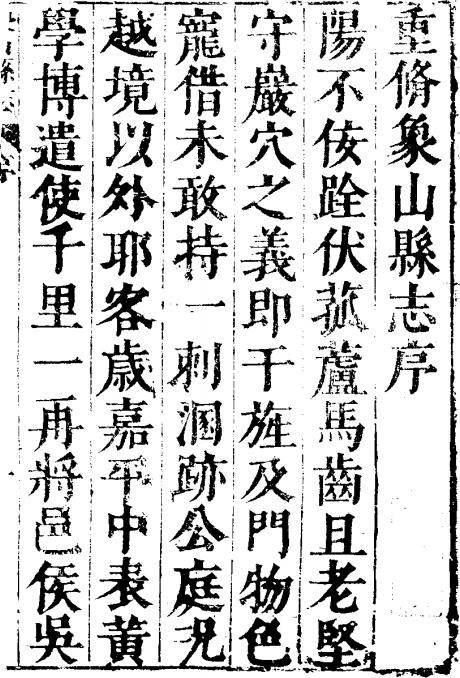 重脩象山縣志序
陽不佞跧伏菰蘆馬齒且老堅
守巖穴之義即干旌及門物色
寵借未敢持一刺溷跡公庭況
越境以外耶客歲嘉平中表黃
學博遣使千里一再將邑侯吳